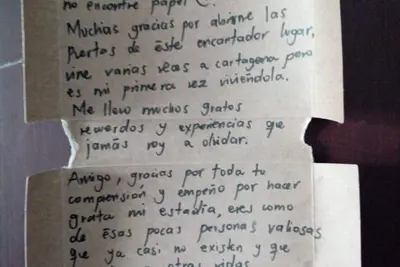 no encontré papel
Muchas gracias por abrirme las
puertas de éste encantador lugar,
vine varias veces a cartagena pero
es mi primera vez viviéndola.
Me llevo muchos gratos
recuerdos y experiencias que
jamás voy a olvidar.
Amigo, gracias por toda tu
comprensión y empeño por hacer
grata mi estadía, eres como
de ésas pocas personas valiosas
que ya casi no existen y que
otras vidas